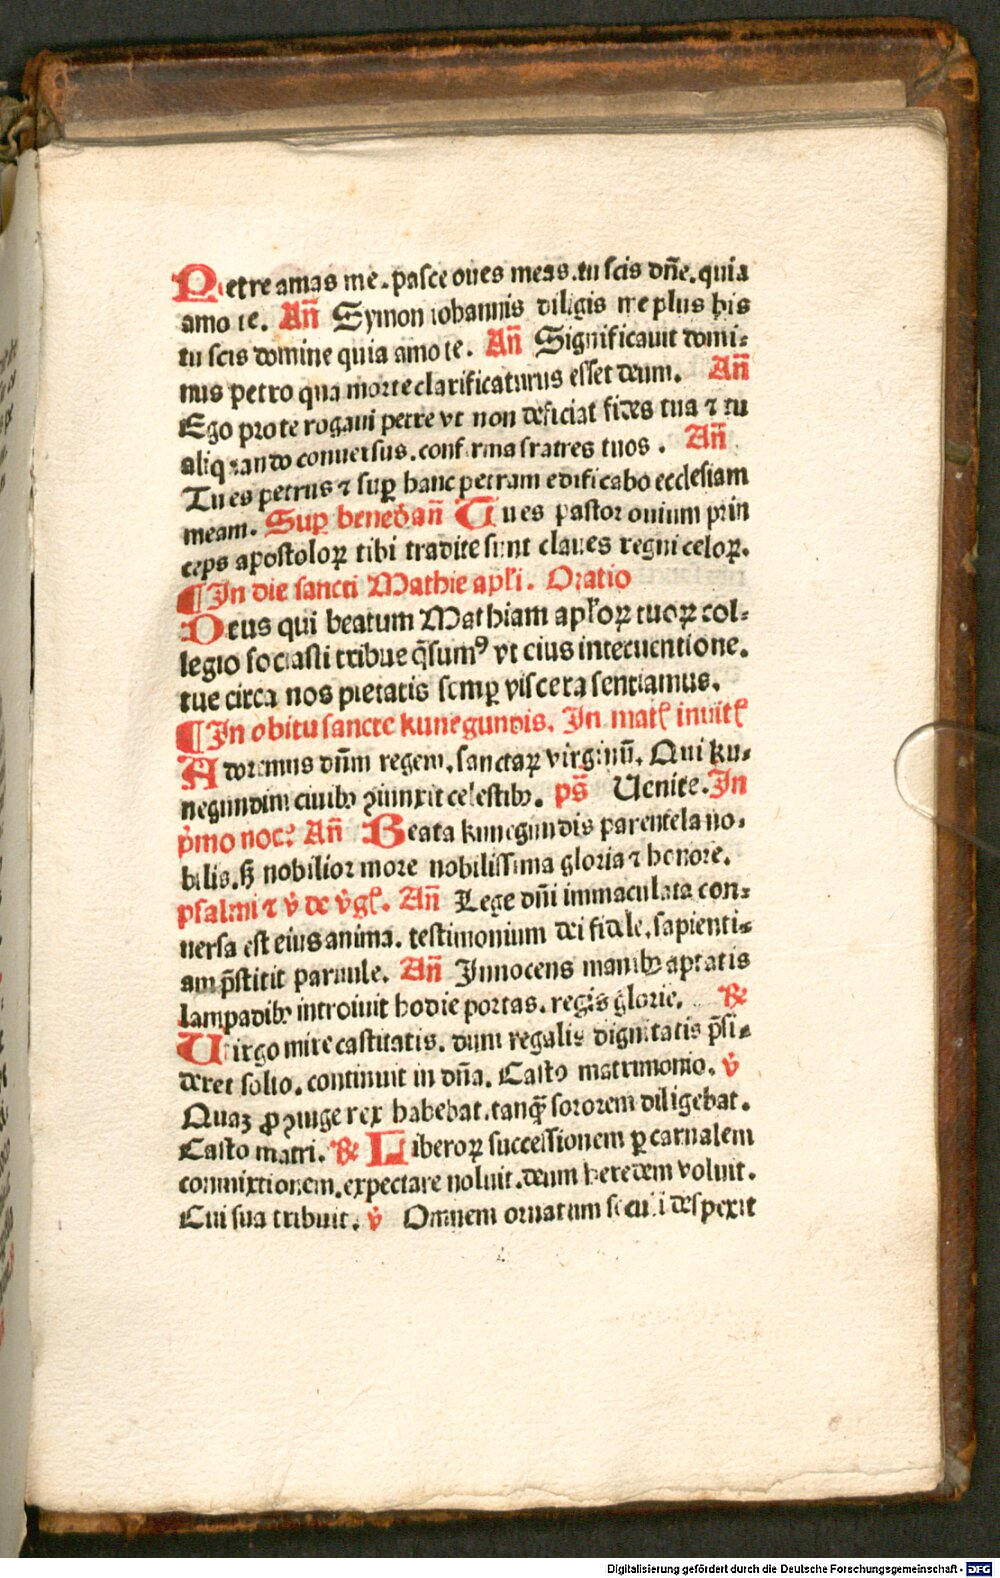 Petre amas me. pasce oues meas. tu scis dñe. quia
amo te. Añ Symon iohannis diligis me plus his
tu scis domine quia amo te. Añ Significauit domi-
nus petro qua morte clarificaturus esset deum. Añ
Ego pro te rogaui petre vt non deficiat fides tua ⁊ tu
aliquando conuersus. confirma fratres tuos. Añ
Tu es petrus ⁊ suꝑ hanc petram edificabo ecclesiam
meam. Suꝑ bened̄ añ Tu es pastor ouium prin
ceps apostoloꝝ tibi tradite sunt claues regni celoꝝ.
¶ In die sancti Mathie apl̓i. Oratio
Deus qui beatum Mathiam apl̓oꝝ tuoꝝ col-
legio sociasti tribue q̄sumꝰ vt eius interuentione.
tue circa nos pietatis semꝑ viscera sentiamus.
¶ In obitu sancte kunegundis. In matꝭ inuitꝭ
Adoremus dūm regem. sanctaꝝ virginū. Qui ku-
negundim ciuibꝫ ꝯiunxit celestibꝫ. ps̄ Uenite. In
p̓mo noc̓. Añ Beata kunegundis parentela no-
bilis. sꝫ nobilior more nobilissima gloria ⁊ honore.
psalmi ⁊ v̓ de v̓gꝭ. Añ Lege dñi immaculata con-
uersa est eius anima. testimonium dei fidele. sapienti-
am p̄stitit paruule. Añ Innocens manibꝫ aptatis
lampadibꝫ introiuit hodie portas. regis glorie. ℟
Uirgo mire castitatis. dum regalis dignitatis p̄si-
deret solio. continuit in dn̄a. Casto matrimonio. v̓
Quaꝫ ꝓ ꝯiuge rex habebat. tanq̄ꝫ sororem diligebat.
Casto matri. ℟ Liberoꝝ successionem ꝑ carnalem
conmixtionem. expectare noluit. deum heredem voluit.
Cui sua tribuit. v̓ Omnem ornatum seculi despexit
Digitalisierung gefördert durch die Deutsche Forschungsgemeinschaft - DFG